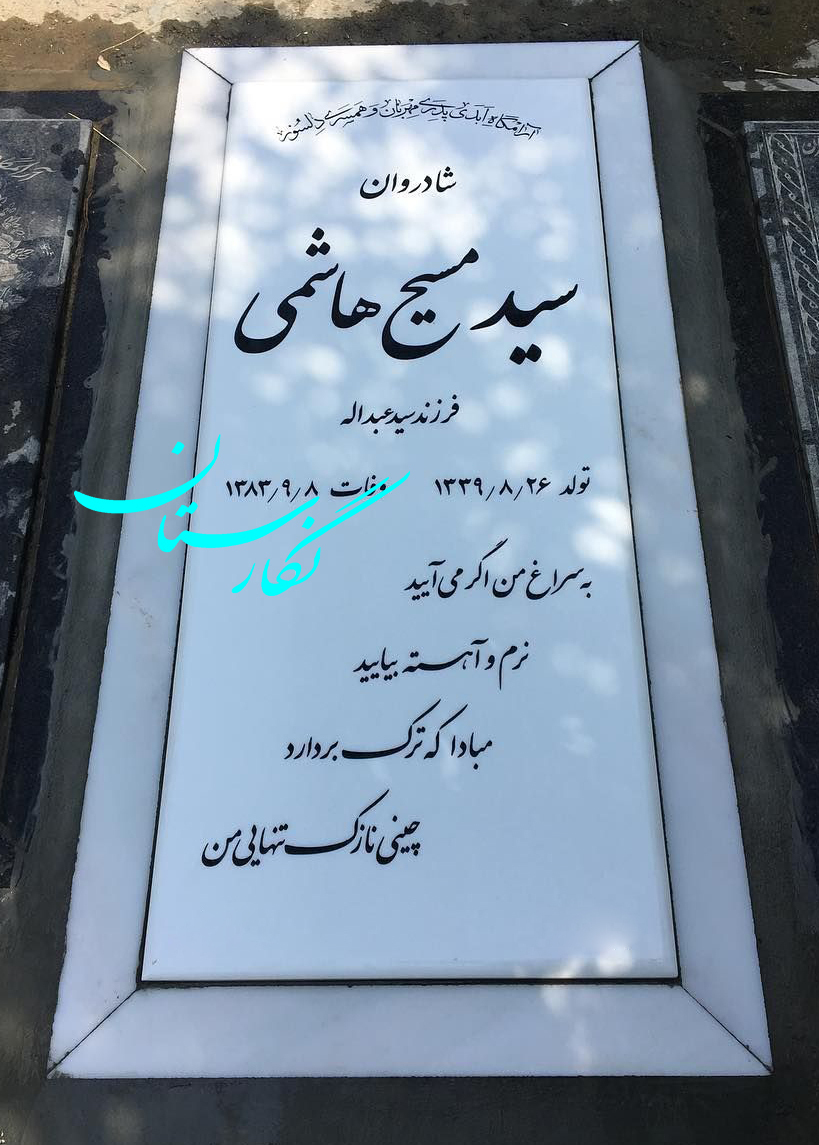 آرامگاه ابدی پدری مهربان و همسری دلسوز
شادروان
سید مسیح هاشمی
فرزند سید عبداله
تولد ۱۳۳۹/۸/۲۶ وفات ۱۳۸۳/۹/۸
به سراغ من اگر می آیید
نرم و آهسته بیایید
مبادا که ترک بردارد
چینی نازک تنهایی من
نگارستان